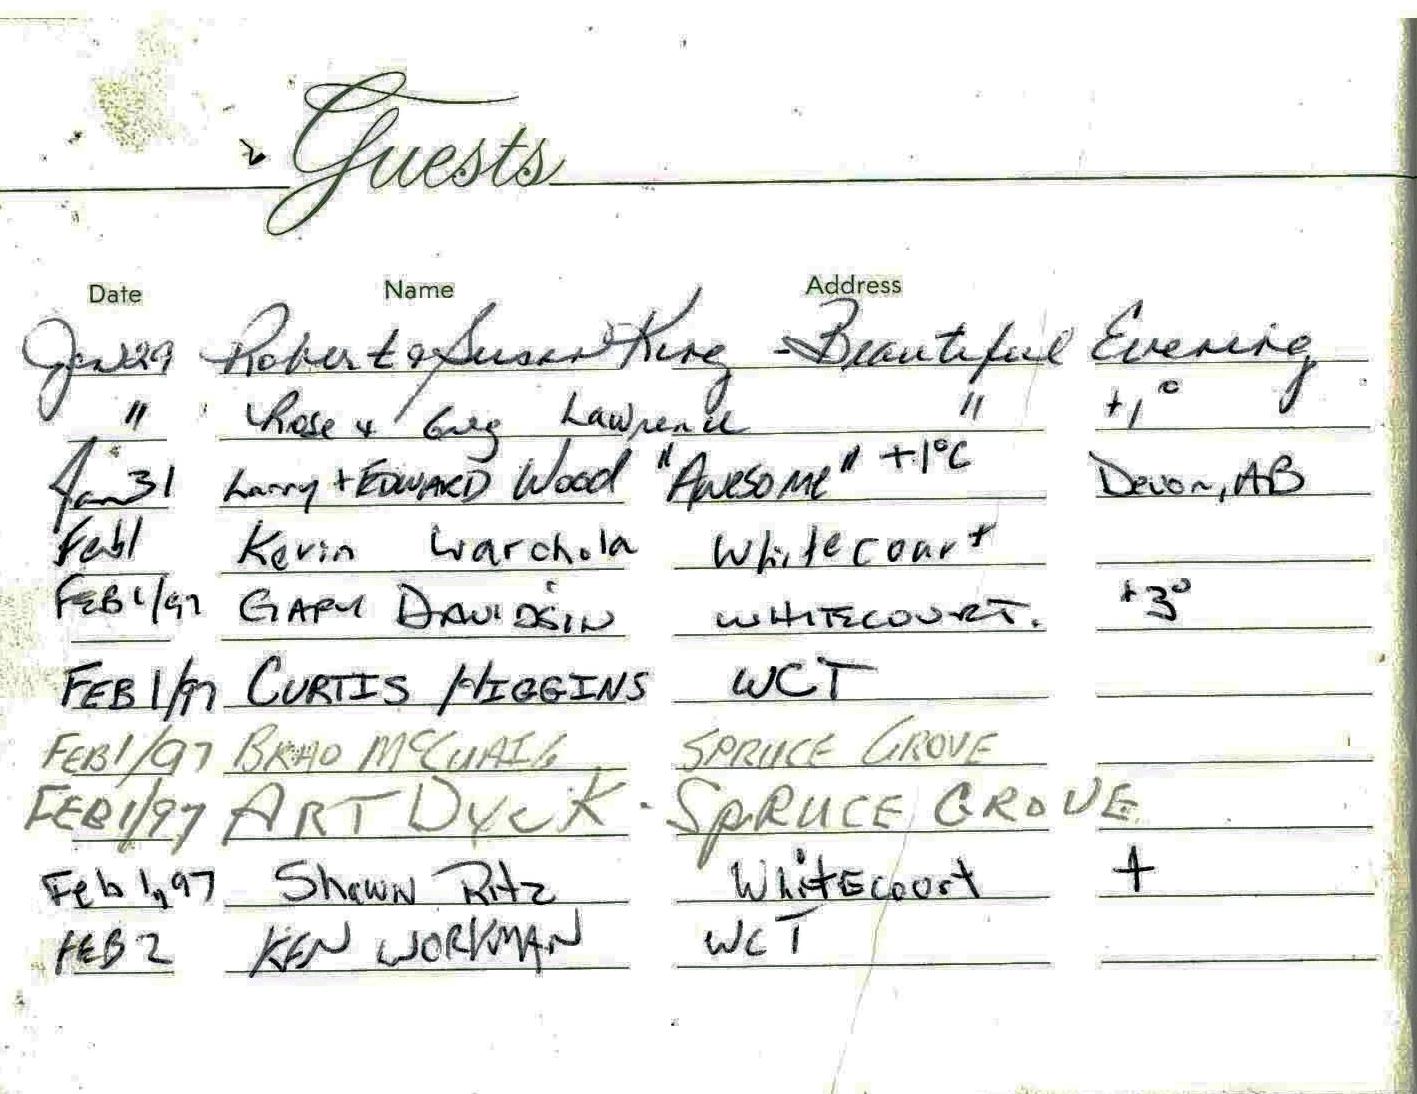 Guests
Date Name Address
Jan 29 Robert & Susan King - Beautiful Evening
" Rose & Greg Lawrence " +1°
Jan 31 Larry + EDWARD Wood "AWESOME" +1°C Devon, AB
Feb 1 Kevin Warchola Whitecourt
FEB 1/97 GARY DAVIDSON WHITECOURT. +3°
FEB 1/97 CURTIS HIGGINS WCT
FEB 1/97 BRAD MCCUAIG SPRUCE GROVE
FEB 1/97 ART DYCK - SPRUCE GROVE
Feb 1, 97 Shawn Ritz WhitEcourt +
FEB 2 KEN WORKMAN WCT